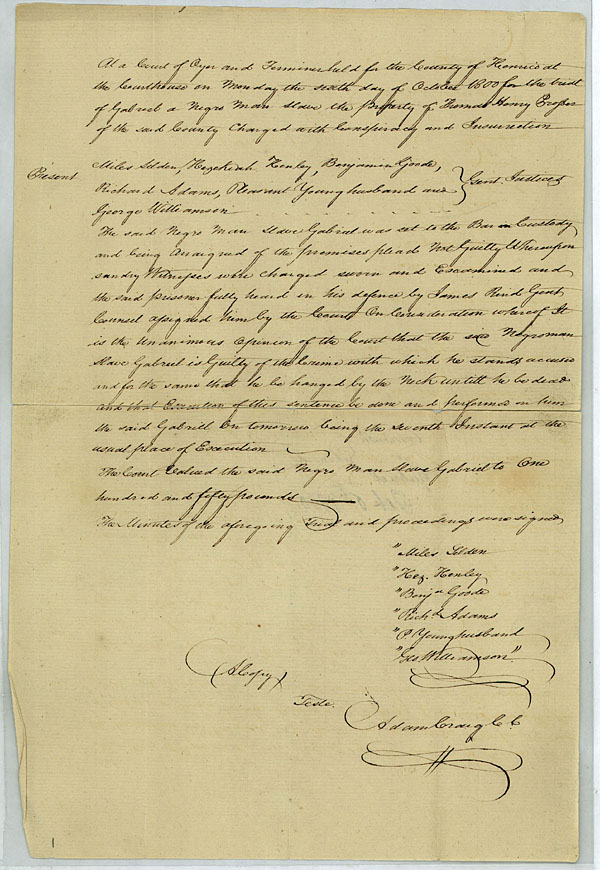 At a Court of Oyer and Terminer held for the County of Henrico at
the Courthouse on Monday the sixth day of October 1800 for the trial
of Gabriel a Negro Man Slave the property of Thomas Henry Prosser
of the said County Charged with Conspiracy and Insurrection
Present
Miles Selden, Hezekiah Henley, Benjamin Goode,
Richard Adams, Pleasant Younghusband and
George Williamson
Gent. Justices
The said Negro Man Slave Gabriel was set to the Bar in Custody
and being Arraigned of the premises plead Not Guilty Whereupon
sundry Witnesses were charged sworn and Examined and
the said prisoner fully heard in his defence by James Rind Gent.
Counsel assigned him by the Court On Consideration whereof It
is the Unanimous Opinion of the Court that the said Negroman
Slave Gabriel is Guilty of the Crime with which he stands accused
and for the same that he be hanged by the Neck untill he be dead
and that Execution of this sentence be done and performed on him
the said Gabriel On tomorrow being the seventh Instant at the
usual place of Execution
The Court Valued the said Negro Man Slave Gabriel to One
hundred and fifty pounds
The Minutes of the aforegoing Trial and proceedings were signed
"Miles Selden
"Hez. Henley
"Benja Goode
"Richd Adams
"P. Younghusband
"Geo Williamson"
A Copy
Teste.
Adam Craig C. C.